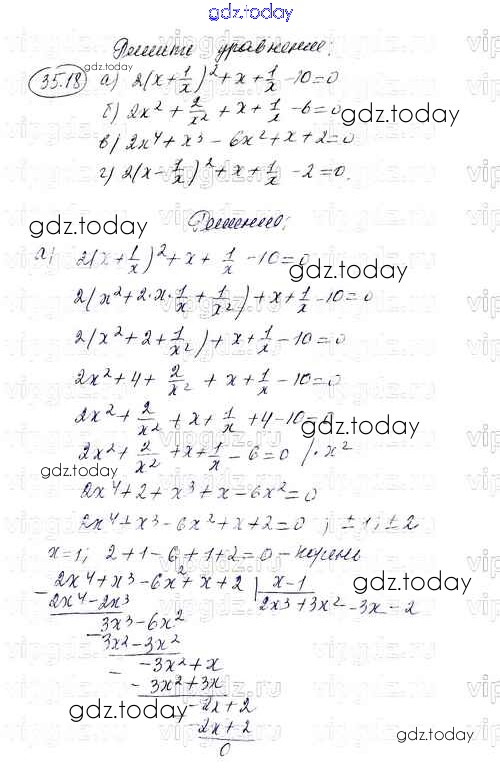 gdz.today
Решите уравнение:
35.18 а) 2(x + 1/x)² + x + 1/x - 10 = 0
б) 2x² + 2/x² + x + 1/x - 6 = 0
gdz.today
в) 2x⁴ + x³ - 6x² + x + 2 = 0
г) 2(x - 1/x)² + x + 1/x - 2 = 0.
Решение:
gdz.today
а) 2(x + 1/x)² + x + 1/x - 10 = 0
gdz.today
2(x² + 2·x·1/x + 1/x²) + x + 1/x - 10 = 0
2(x² + 2 + 1/x²) + x + 1/x - 10 = 0
2x² + 4 + 2/x² + x + 1/x - 10 = 0
2x² + 2/x² + x + 1/x + 4 - 10 = 0
gdz.today
2x² + 2/x² + x + 1/x - 6 = 0 /·x²
gdz.today
2x⁴ + 2 + x³ + x - 6x² = 0
2x⁴ + x³ - 6x² + x + 2 = 0; ±1; ±2
x = 1; 2 + 1 - 6 + 1 + 2 = 0 - корень
- 2x⁴ + x³ - 6x² + x + 2 | x - 1
gdz.today
2x⁴ - 2x³ 2x³ + 3x² - 3x - 2
- 3x³ - 6x²
3x² - 3x²
- -3x² + x
- 3x² + 3x
gdz.today
- -2x + 2
gdz.today
2x + 2
0